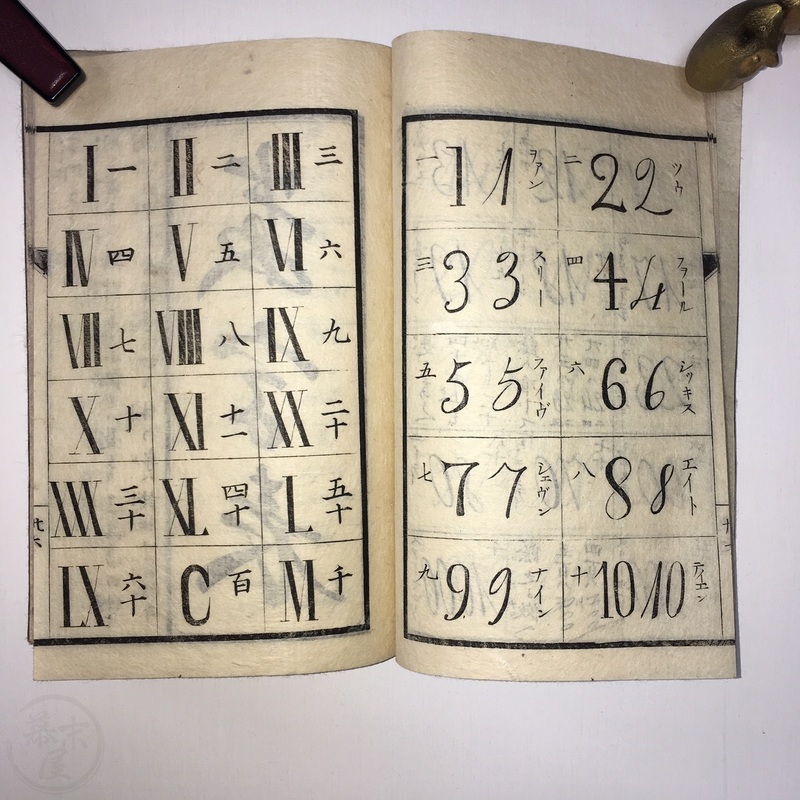 I 一 II 二 III 三
IV 四 V 五 VI 六
VII 七 VIII 八 IX 九
X 十 XI 十一 XX 二十
XXX 三十 XL 四十 L 五十
LX 六十 C 百 M 千
廿六
一 1 1 ヲァン 二 2 2 ツウ
三 3 3 スリー 四 4 4 フヲール
五 5 5 ファイヴ 六 6 6 シッキス
七 7 7 シェヴン 八 8 8 エイト
九 9 9 ナイン 十 10 10 テイエン
幕末屋